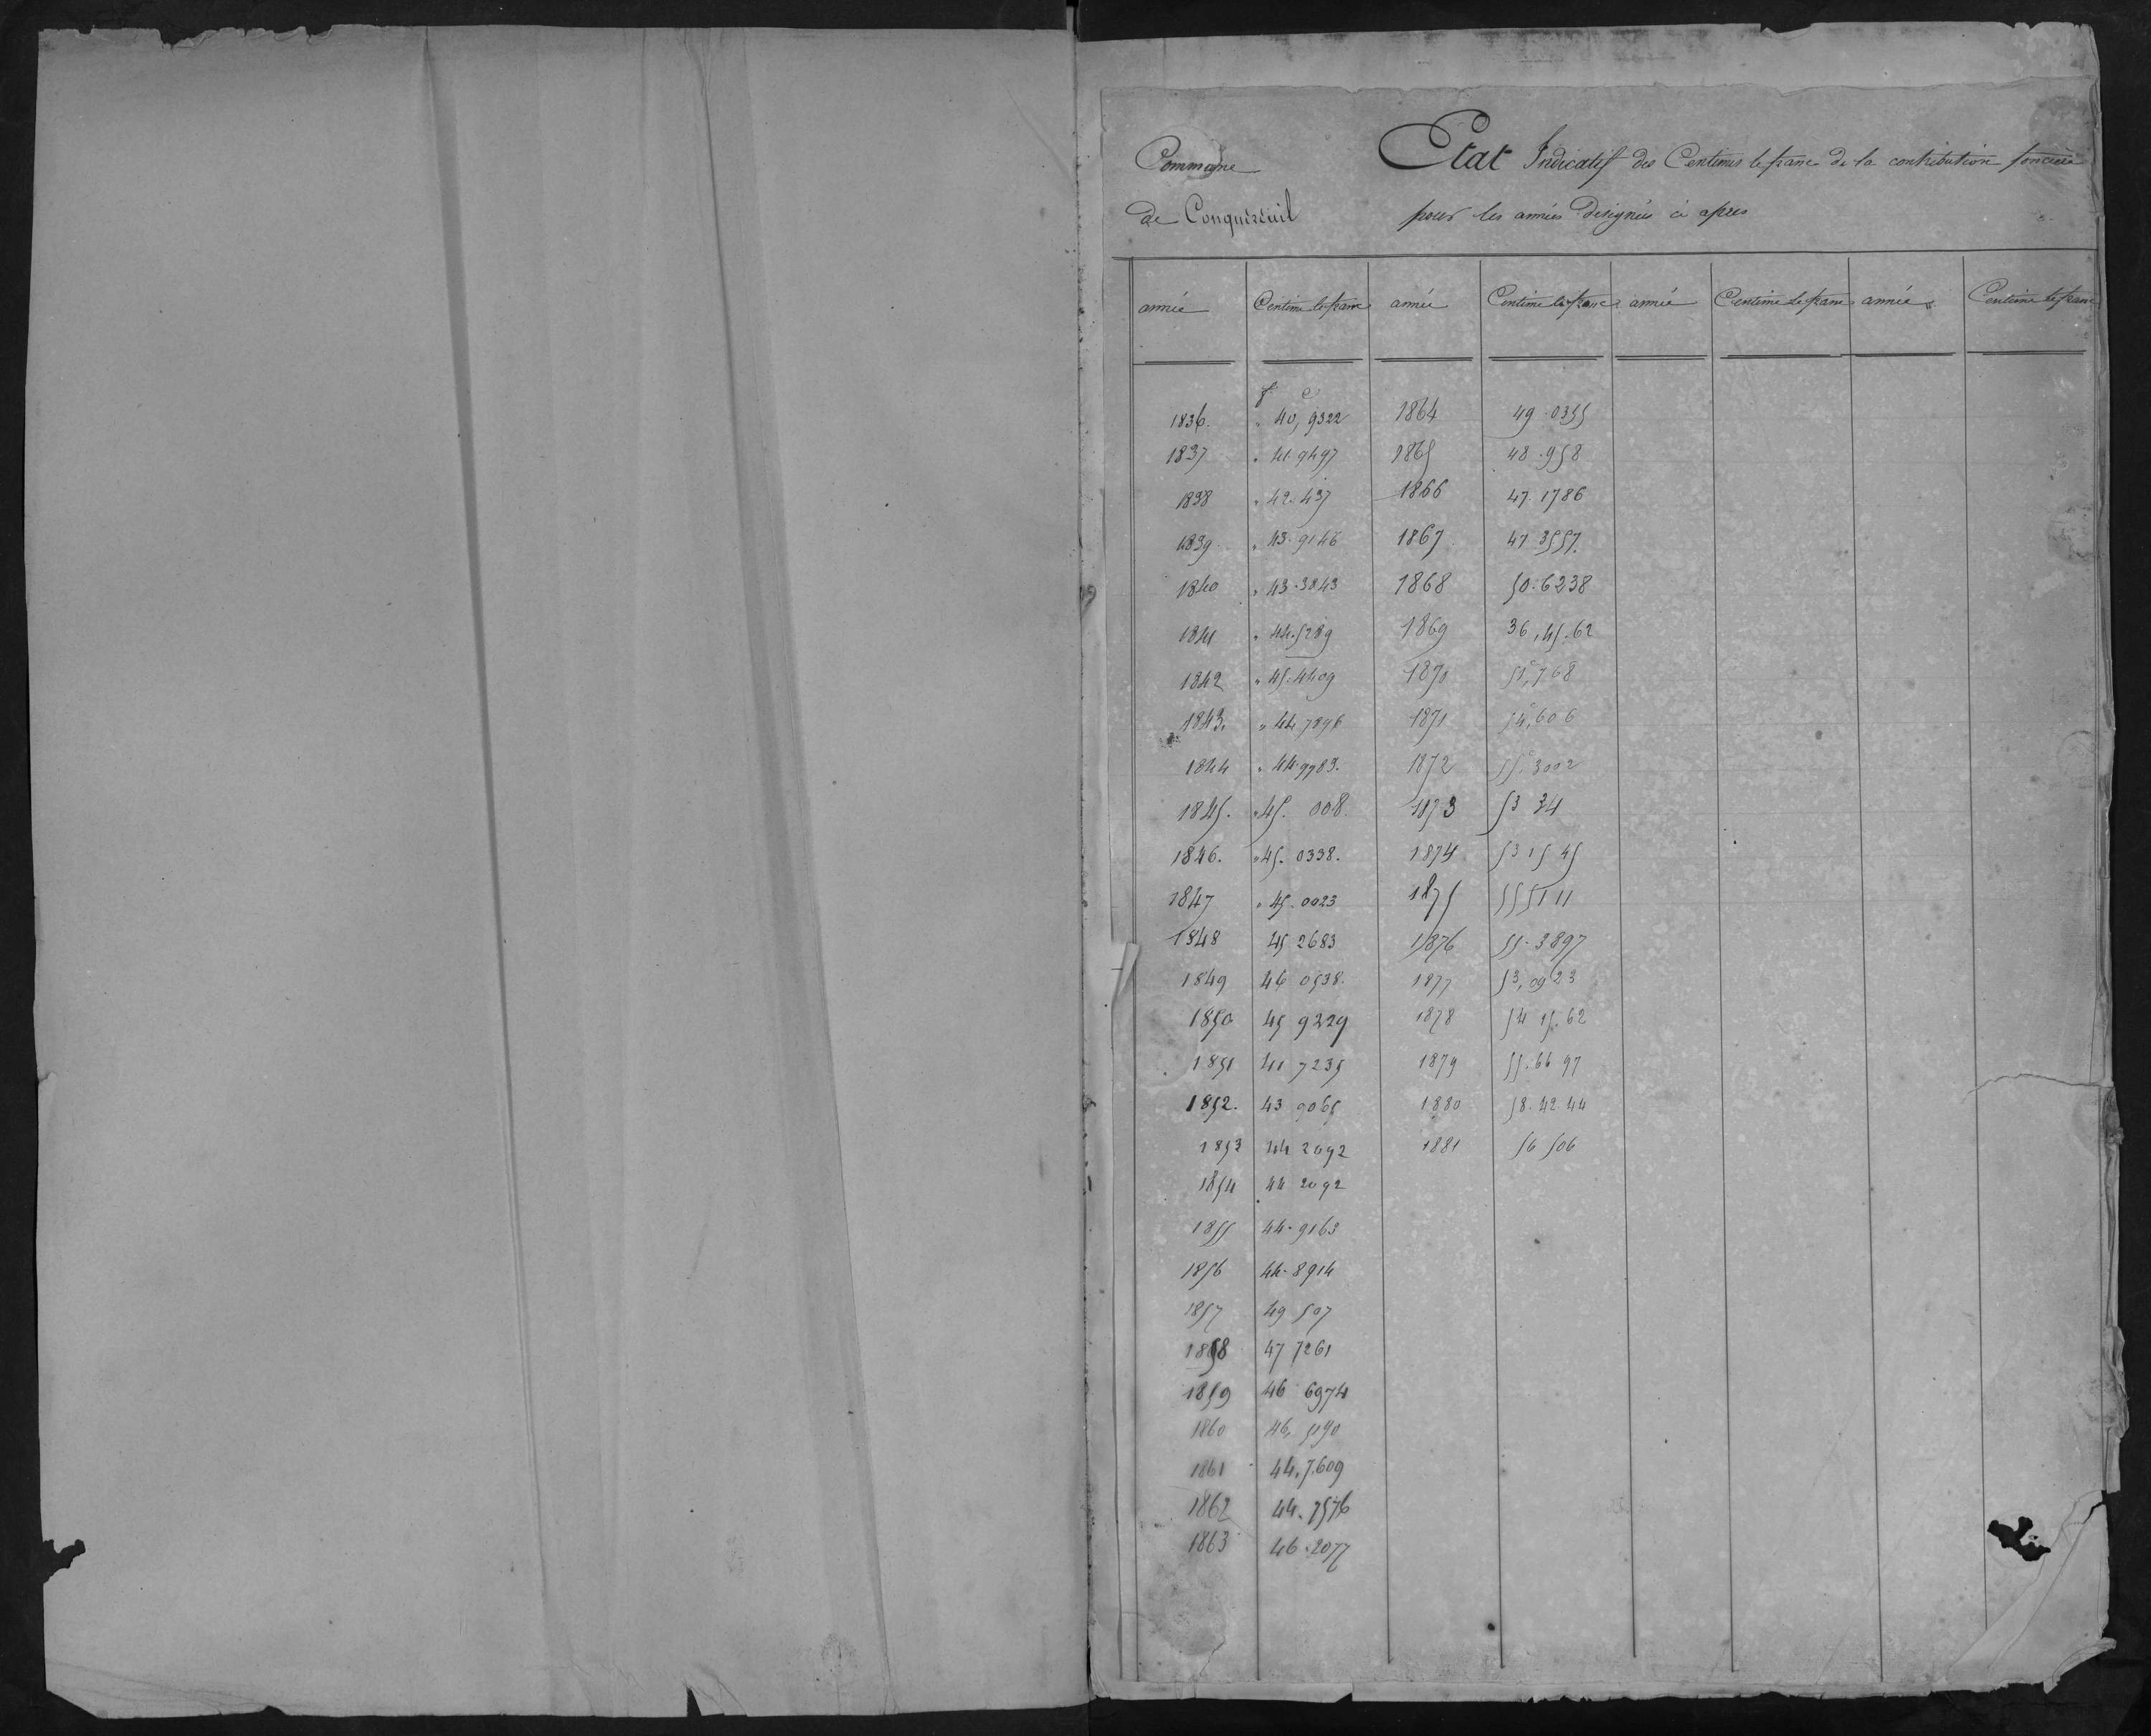 Commune
de Conquereuil
Etat Indicatif des Centimes le franc de la contribution foncière
pour les années designées ci apres
année Centime le franc année Centime le franc année Centime le franc année Centime le franc
f c
1836. " 40,9322 1864 49.0355
1837 " 41.9497 1865 48.958
1838 " 42.437 1866 47.1786
1839. " 43.9146 1867 47.3557.
1840 " 43.3843 1868 50.6238
1841 " 44.5289 1869 36,45.62
1842 " 45.4409 1870 51,768
1843. " 44.7896 1871 54,606
1844 " 44.9983. 1872 55.3002
1845. " 45. 008. 1873 53 34
1846. " 45. 0338. 1874 53 15 45
1847 " 45.0023 1875 55 51 11
1848 45 2683 1876 55.3897
1849 46 0538. 1877 53,0923
1850 45 9229 1878 54 15.62
1851 41 7235 1879 55.66 97
1852. 43 9065 1880 58.42.44
1853 44 2092 1881 56 506
1854 44 2092
1855 44.9163
1856 44.8914
1857 49 507
1858 47 7261
1859 46 6974
1860 46, 5190
1861 44.7609
1862 44.7576
1863 46.2077